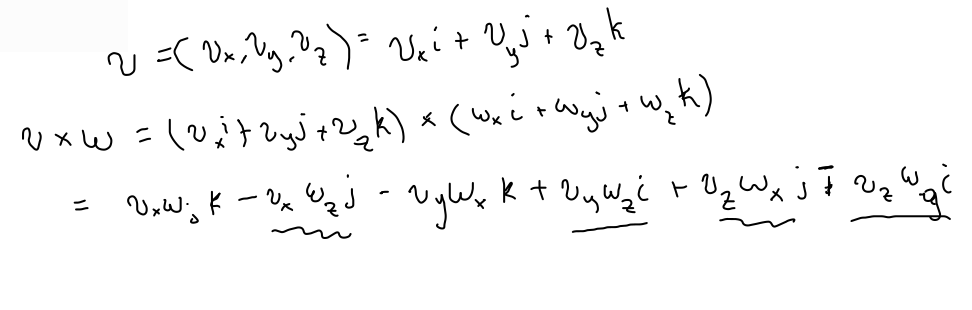 v = (v_x, v_y, v_z) = v_x i + v_y j + v_z k
v × w = (v_x i + v_y j + v_z k) × (w_x i + w_y j + w_z k)
= v_x w_y k - v_x w_z j - v_y w_x k + v_y w_z i + v_z w_x j - v_z w_y i